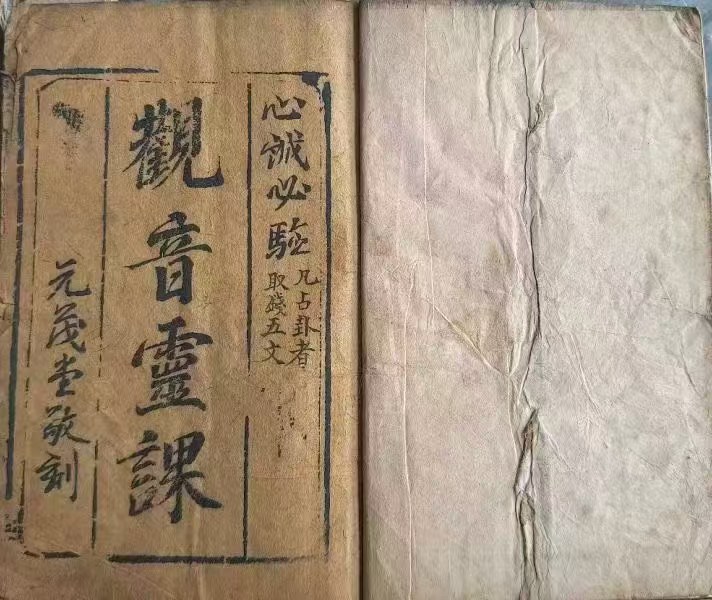 心誠必騐
凡占卦者
取錢五文
觀音靈課
元茂堂敬刻